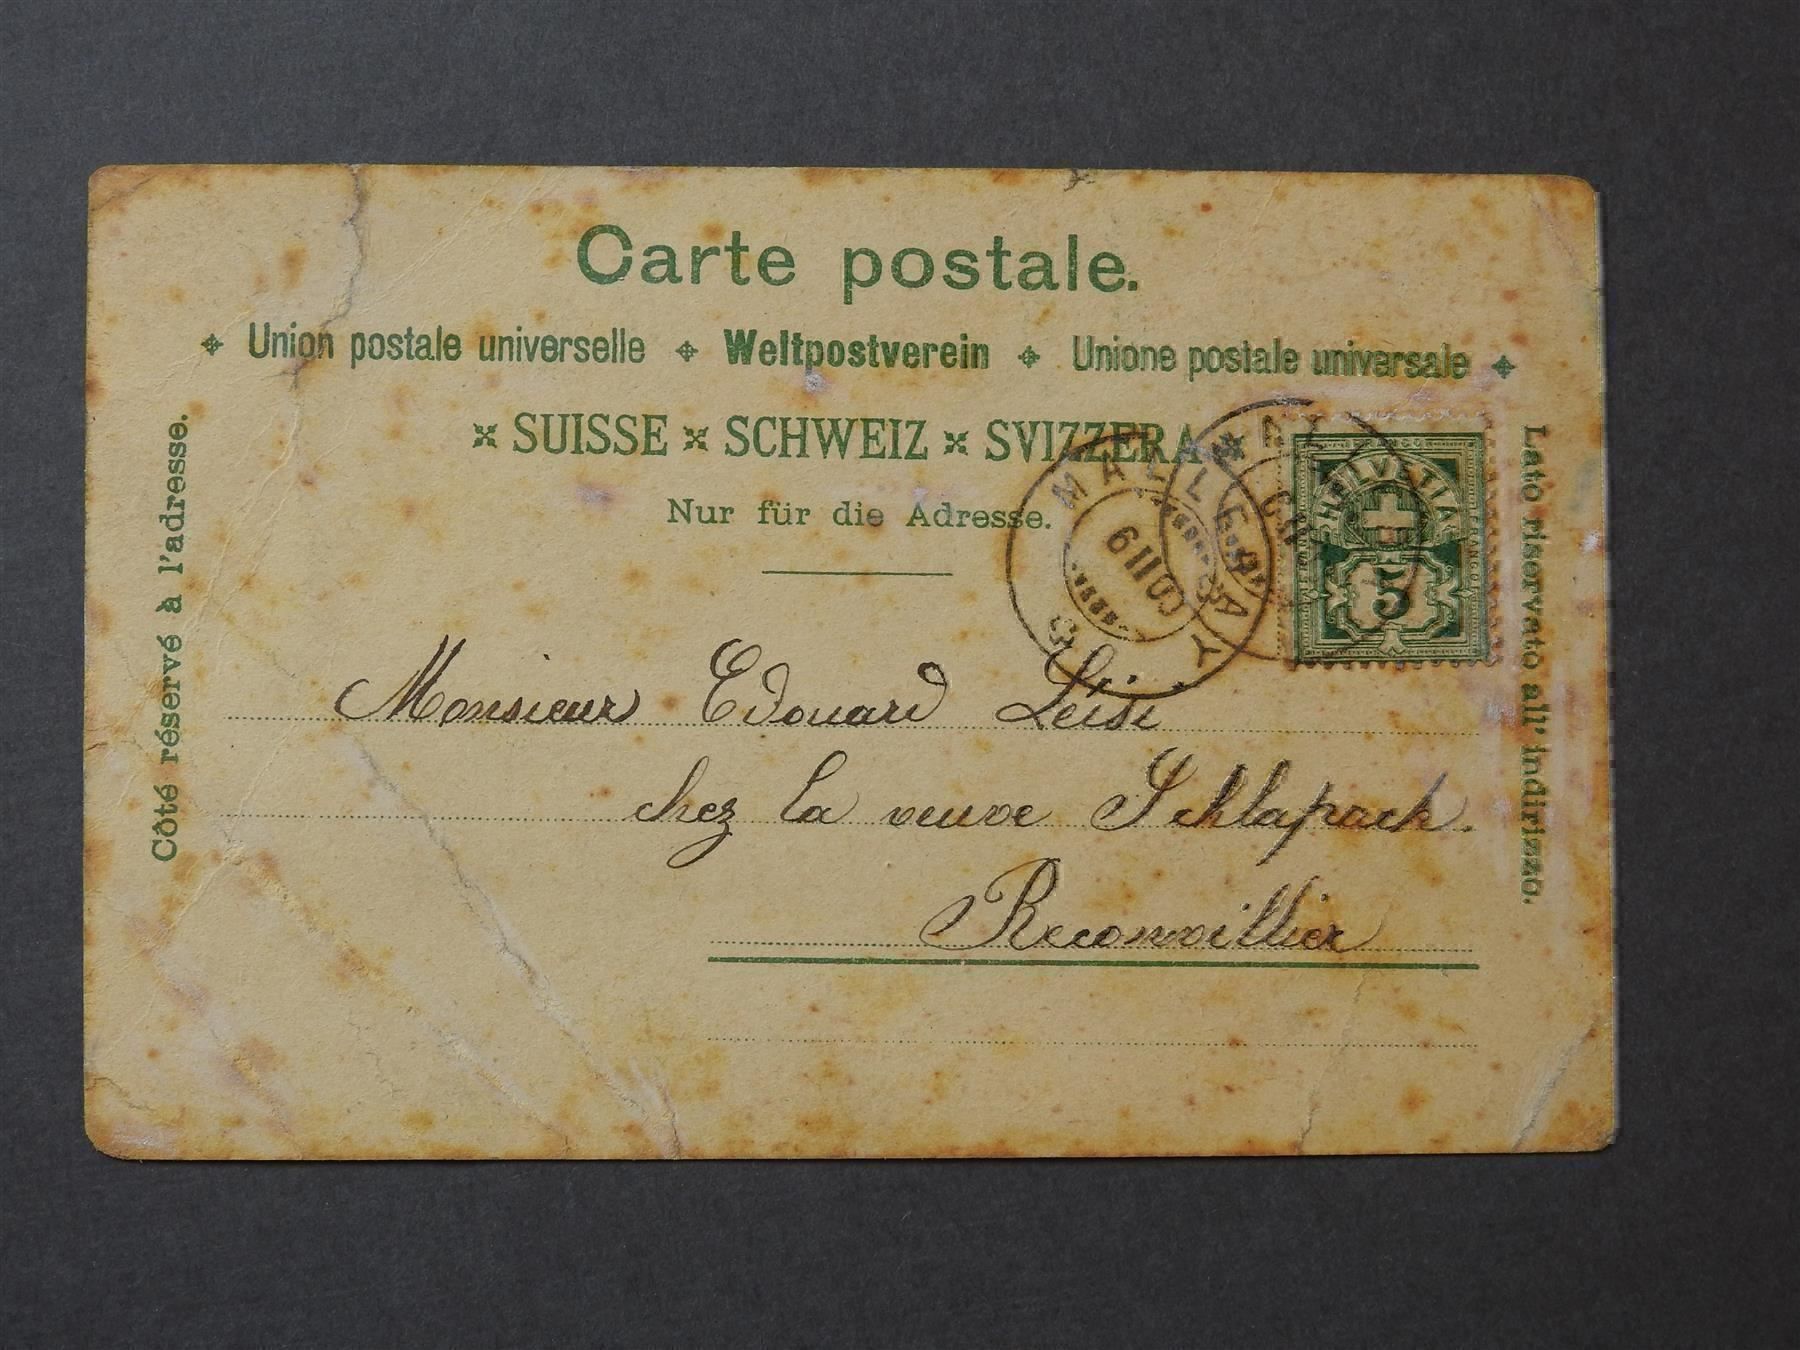 Carte postale.
Union postale universelle Weltpostverein Unione postale universale
SUISSE SCHWEIZ SVIZZERA
Nur für die Adresse.
Côté réservé à l'adresse.
Lato riservato all' indirizzo.
MALLERAY
MALLERAY
FRANCO
HELVETIA
5
Monsieur Edouard Leisi
chez la veuve Schlapach.
Reconvillier